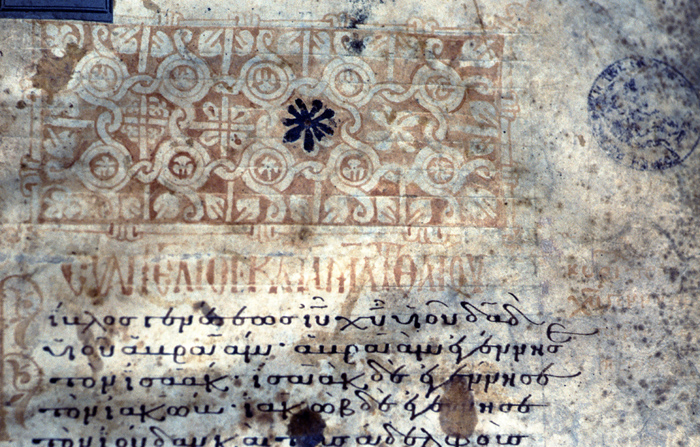 ΕΥΑΓΓΕΛΙΟΝ ΚΑΤΑ ΜΑΤΘΑΙΟΝ
Βίβλος γενέσεως ἰῦ χῦ υἱοῦ δαδ
υἱοῦ ἀβραάμ· ἀβραὰμ ἐγέννησε
τὸν ἰσαάκ· ἰσαὰκ δὲ ἐγέννησε
τὸν ἰακώβ· ἰακὼβ δὲ ἐγέννησε
τὸν ἰούδαν καὶ τοὺς ἀδελφοὺς